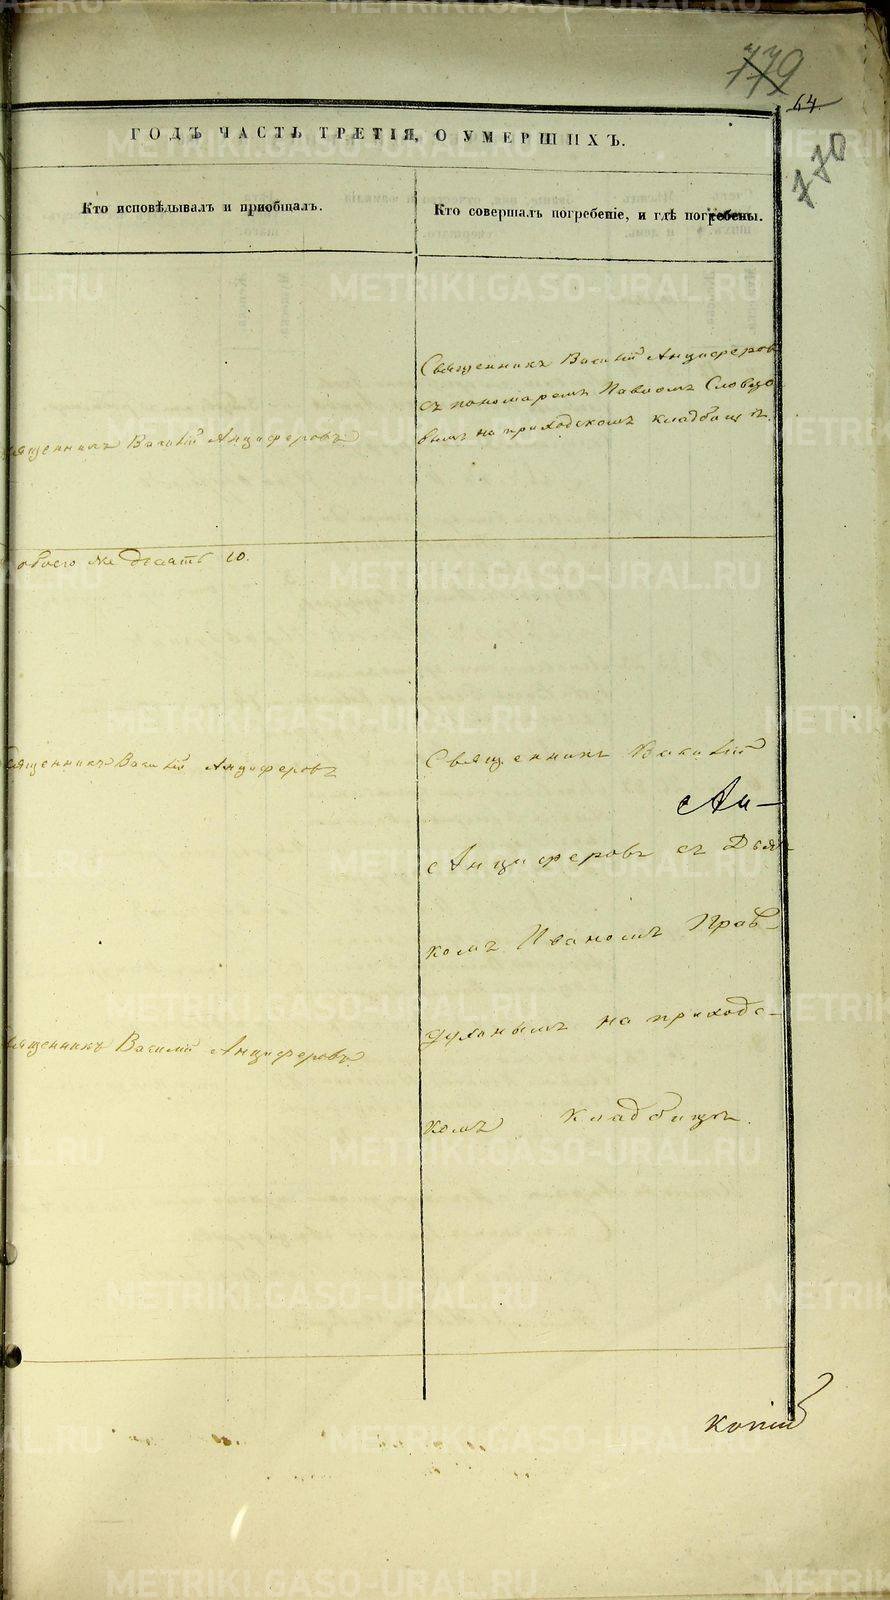 779
64
770
ГОДЪ ЧАСТЬ ТРЕТІЯ, О УМЕРШИХЪ.
Кто исповѣдывалъ и пріобщалъ.
Кто совершалъ погребеніе, и гдѣ погребены.
Священникъ Василій Анциферовъ
съ пономаремъ Павломъ Словцо
вымъ на приходскомъ кладбищѣ.
ященникъ Василій Анциферовъ
обоего же десять 10.
вященникъ Василій Анциферовъ
Священникъ Василій
Ан-
Анциферовъ съ Дья
комъ Иваномъ
на приходс-
комъ кладбищѣ.
вященникъ Василій Анциферовъ.
METRIKI.GASO-URAL.RU